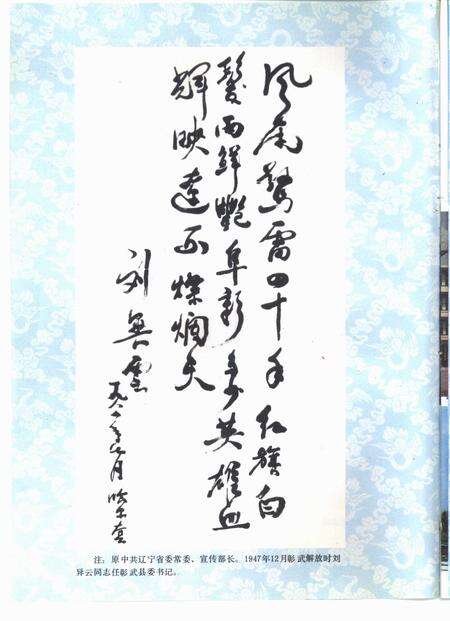 风雨驚雷四十年红旗白
鬓两鲜艳阜新多少英雄血
辉映遼西燦爛天
刘異雲
月哈尔套
注：原中共辽宁省委常委、宣传部长。1947年12月彰武解放时刘
异云同志任彰武县委书记。